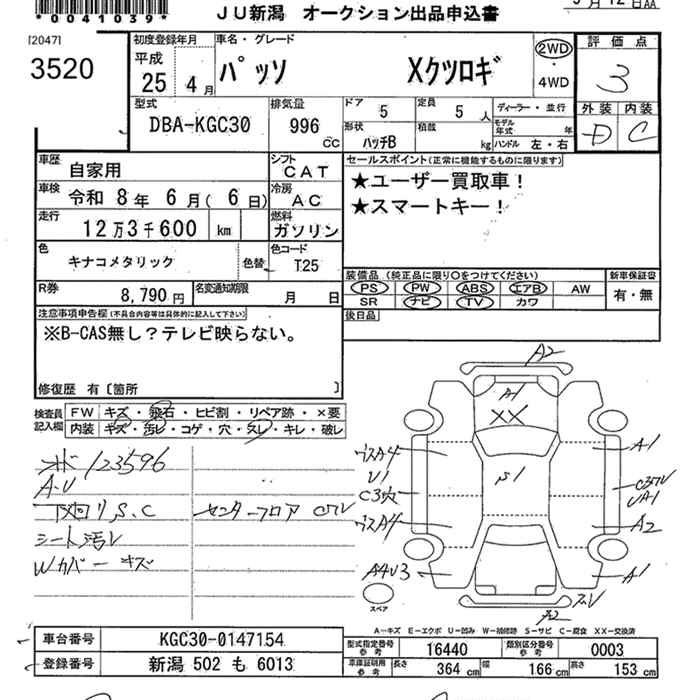 *0041039*
JU新潟 オークション出品申込書
[2047]
3520
初度登録年月
平成
25 4月
車名・グレード
パッソ Xクツロギ
2WD
・
4WD
評価点
3
外装 内装
D C
型式
DBA-KGC30
排気量
996 CC
ドア 5
定員 5 人
ディーラー・並行
形状 ハッチB
積載 kg
モデル年式 年
ハンドル 左・右
車歴 自家用
シフト CAT
車検 令和 8年 6月( 6日)
冷房 AC
走行 12万3千600 km
燃料 ガソリン
セールスポイント(正常に機能するものに限ります)
★ユーザー買取車!
★スマートキー!
色 キナコメタリック 色替
色コード T25
R券 8,790円
名変通知期限 月 日
装備品 (純正品に限り○をつけてください)
PS PW ABS エアB AW
SR ナビ TV カワ
新車保証書
有・無
後日品
注意事項申告欄(不具合内容等は具体的に記入して下さい)
※B-CAS無し?テレビ映らない。
修復歴 有〔箇所 〕
検査員記入欄
FW キズ・飛石・ヒビ割・リペア跡・×要
内装 キズ・汚レ・コゲ・穴・スレ・キレ・破レ
123596
A.U
S.C
センターフロア
シート汚レ
Wカバー キズ
A2
A1
XX
S1
A4
U1
C3穴
A4
A4U3
A1
UA1
A2
A1
スペア
A-キズ E-エクボ U-凹み W-補修跡 S-サビ C-腐食 XX-交換済
車台番号 KGC30-0147154
登録番号 新潟 502 も 6013
型式指定番号 参考 16440
類別区分番号 参考 0003
車庫証明用 参考 長さ 364 cm 幅 166 cm 高さ 153 cm